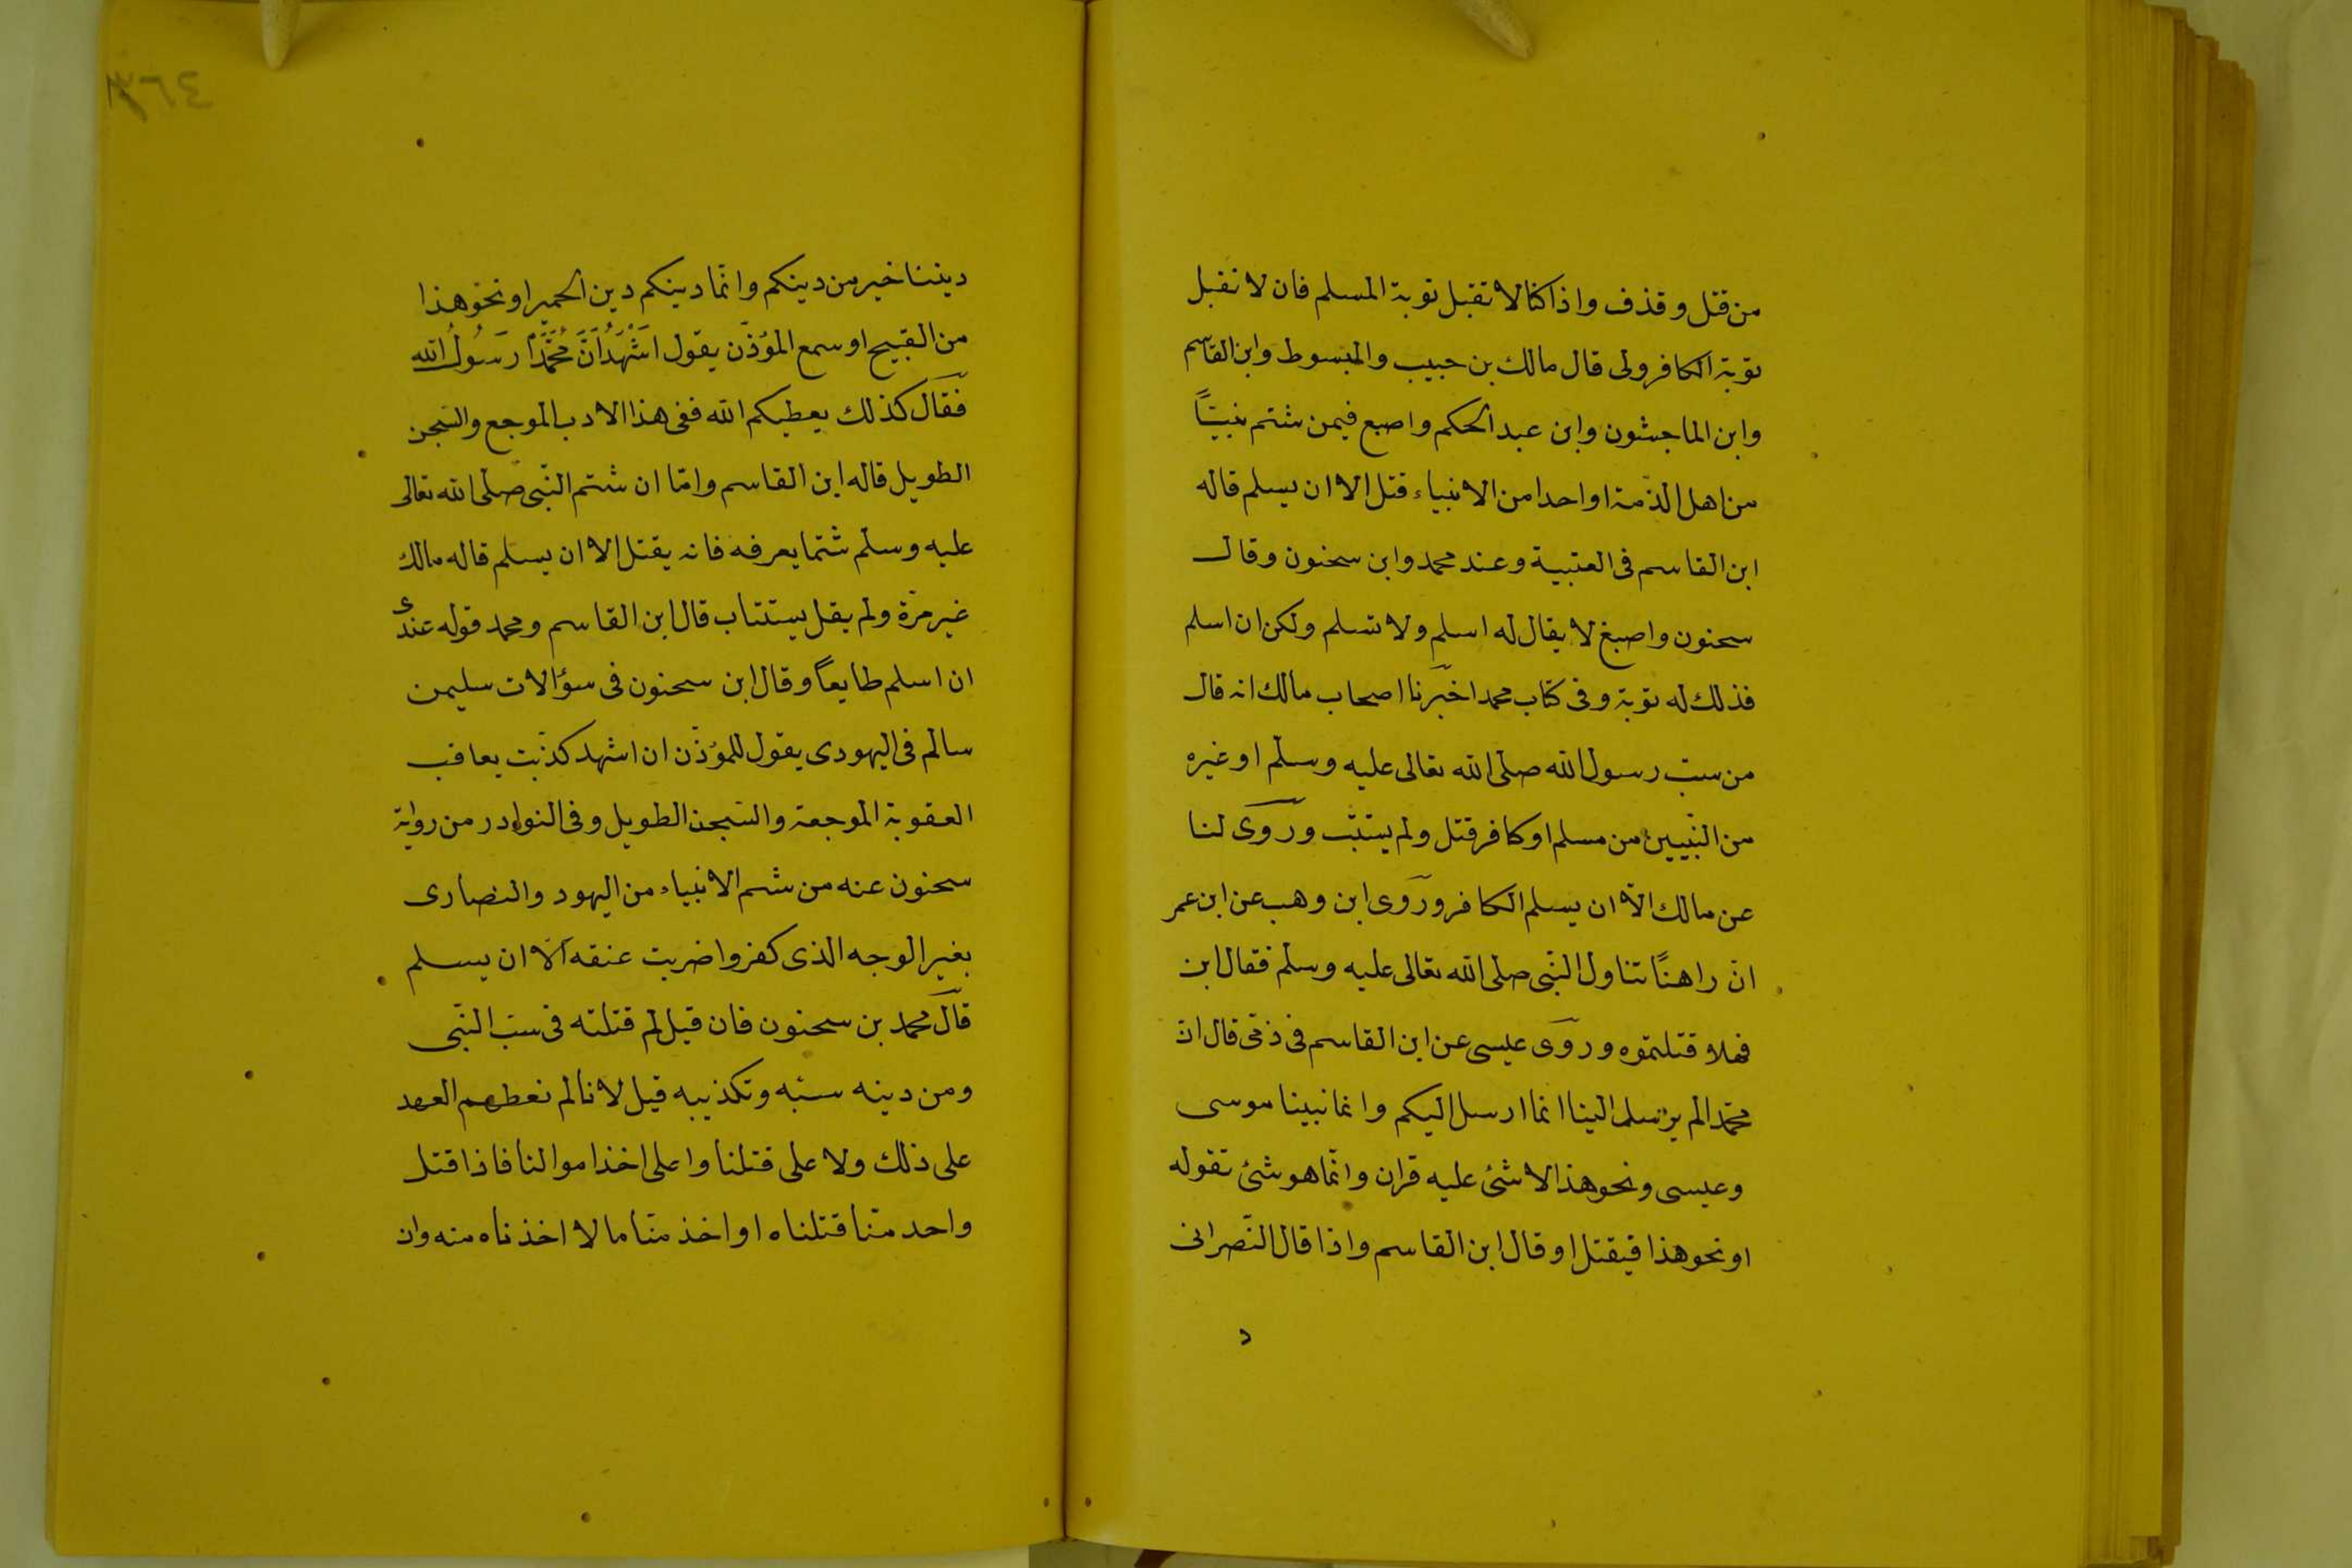 من قتل وقذف واذا كنا لا تقبل توبة المسلم فان لا تقبل
توبة الكافر ولى قال مالك بن حبيب والمبسوط وابن القاسم
وابن الماجشون وابن عبد الحكم واصبع فيمن شتم نبيّاً
من اهل الذّمة او احدا من الانبياء قتل الا ان يسلم قاله
ابن القاسم فى العتبية وعند محمد وابن سحنون وقال
سحنون واصبغ لا يقال له اسلم ولا تسلم ولكن ان اسلم
فذلك له توبة وفى كتاب محمد اخبرنا اصحاب مالك انه قال
من سبّ رسول الله صلى الله تعالى عليه وسلم او غيره
من النّبيين من مسلم او كافر قتل ولم يستتب وروى لنا
عن مالك الّا ان يسلم الكافر وروى ابن وهب عن ابن عمر
انّ راهنًا تناول النّبى صلى الله تعالى عليه وسلم فقال ابن
فهلا قتلتموه وروى عيسى عن ابن القاسم فى ذمّى قال انّ
محمّدا لم يرسل الينا انما ارسل اليكم وانما نبينا موسى
وعيسى ونحو هذا لا شئ عليه قران وانّما هو شئ تقوله
او نحو هذا فيقتل او قال ابن القاسم واذا قال النّصرانى
د
٣٦٤
ديننا خير من دينكم وانّما دينكم دين الحمير او نحو هذا
من القبيح او سمع المؤذّن يقول اَشْهَدُ اَنَّ مُحَمَّدًا رَسُولُ الله
فقال كذلك يعطيكم الله ففى هذا الادب الموجع والسّجن
الطويل قاله ابن القاسم وامّا ان شتم النّبى صلّى الله تعالى
عليه وسلّم شتما يعرفه فانه يقتل الا ان يسلم قاله مالك
غير مرّة ولم يقل يستتاب قال ابن القاسم ومحمد قوله عندى
ان اسلم طايعاً وقال ابن سحنون فى سؤالات سليمن
سالم فى اليهودى يقول للمؤذّن ان اشهد كذّبت يعاقب
العقوبة الموجعة والسّجن الطويل وفى النوادر من رواية
سحنون عنه من شتم الانبياء من اليهود والنصارى
بغير الوجه الذى كفروا ضربت عنقه الّا ان يسلم
قال محمد بن سحنون فان قيل لم قتلته فى سبّ النّبى
ومن دينه سبّه وتكذيبه قيل لانا لم نعطهم العهد
على ذلك ولا على قتلنا وا على اخذ اموالنا فاذا قتل
واحد منّا قتلناه او اخذ منّا مالا اخذناه منه وان